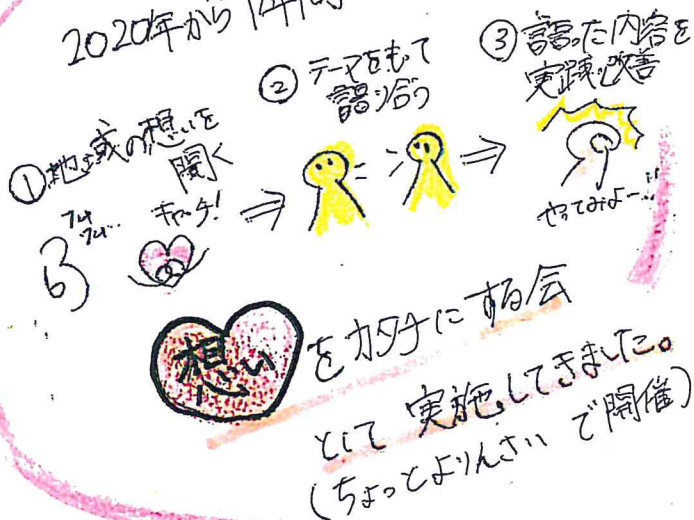 2020年から 14回
①地域の想いを
聞く
フムフム…
キャッチ!
②テーマをもって
語り合う
③語った内容を
実践・改善
やってみよー!!
想いをカタチにする会
として実施してきました。
(ちょっとよりんさい で開催)